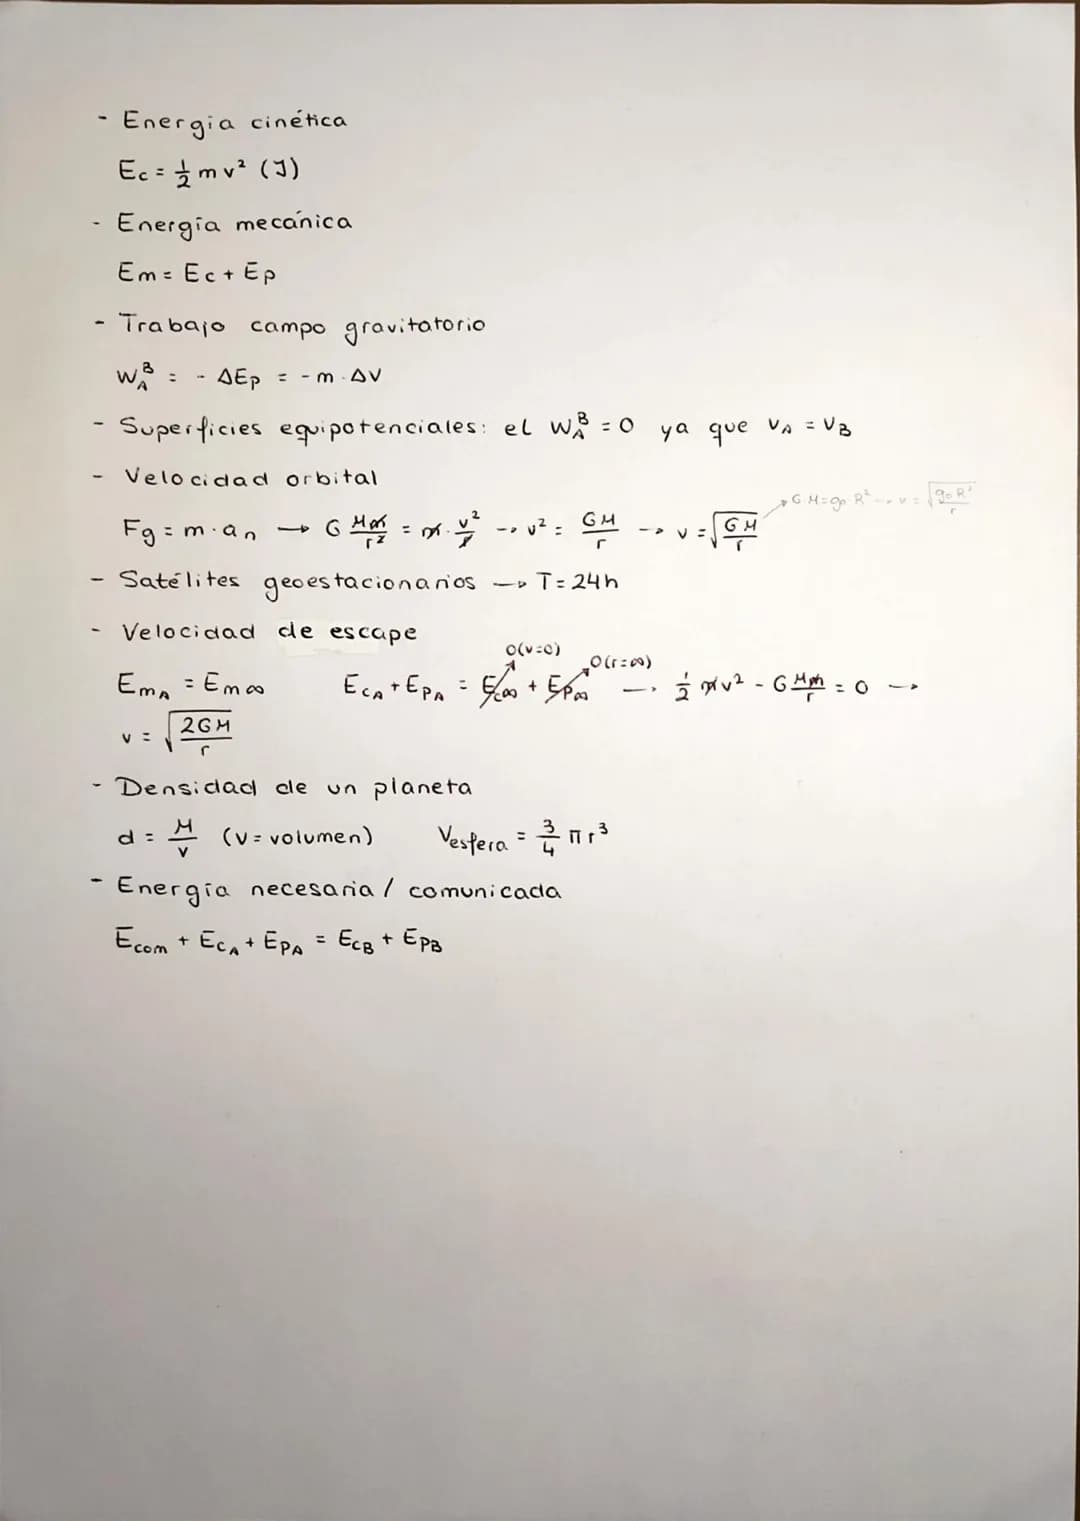 - Energía cinética
Ec = 1/2 m v² (J)
- Energía mecánica
Em = Ec + Ep
- Trabajo campo gravitatorio
W_A^B = - ΔEp = - m · ΔV
- Superficies equipotenciales: el W_A^B = 0 ya que V_A = V_B
- Velocidad orbital
Fg = m · a_n → G Mm/r² = m · v²/r → v² = GM/r → v = √(GM/r) → G·M = g₀·R² → v = √(g₀R²/r)
- Satélites geoestacionarios → T = 24h
- Velocidad de escape
0(v=0) 0(r=∞)
Em_A = Em∞ Ec_A + Ep_A = Ec∞ + Ep∞ → 1/2 m v² - G Mm/r = 0 →
v = √(2GM/r)
- Densidad de un planeta
d = M/V (V = volumen) Vesfera = 3/4 π r³
- Energía necesaria / comunicada
Ecom + Ec_A + Ep_A = Ec_B + Ep_B